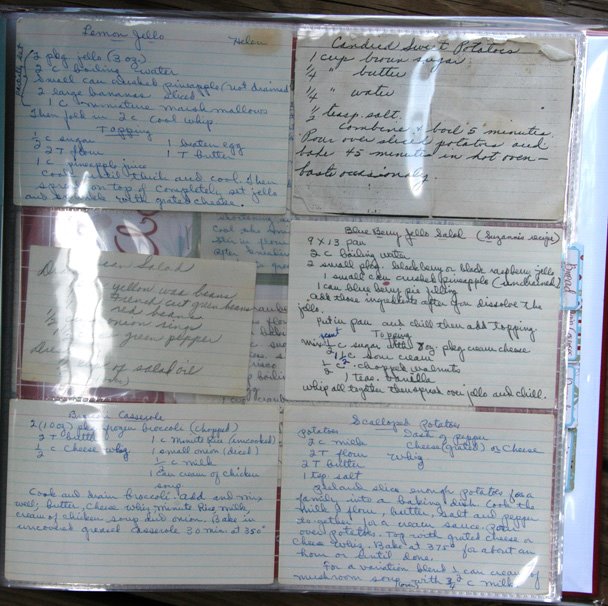 Lemon Jello
Helen
partly set
2 pkg. jello (3 oz.)
2 c boiling water
small can crushed pineapple (not drained)
2 large bananas sliced
1 c miniature marshmallows
Then fold in 2 c Cool whip
Topping
½ c sugar
1 beaten egg
2 T flour
1 T butter
1 c pineapple juice
Cook until thick and cool. Then
spread on top of completely set jello
and sprinkle with grated cheese.
Candied Sweet Potatoes
1 cup brown sugar
¼ " butter
¼ " water
½ teasp. salt.
Combine & boil 5 minutes.
Pour over sliced potatoes and
bake 45 minutes in hot oven—
baste occasionally.
Bean Salad
yellow wax beans
French cut green beans
red beans
onion rings
green pepper
of salad oil
Blue Berry Jello Salad (Suzanne's recipe)
9 x 13 pan
2 c boiling water
2 small pkg. blackberry or black raspberry jello
1 small can crushed pineapple (undrained)
1 can blueberry pie filling
Add these ingredients after you dissolve the
jello.
Put in pan and chill then add topping.
Topping
mix ½ c sugar with 8 oz. pkg cream cheese
½ c sour cream
½ c chopped walnuts
1 teas. Vanilla
whip all together then spread over jello and chill.
Broccoli Casserole
2 (10 oz) pkg frozen broccoli (chopped)
2 T butter
1 c Minute Rice (uncooked)
½ c Cheese Whiz
1 small onion (diced)
½ c milk
1 can cream of chicken
soup
Cook and drain broccoli. Add and mix
well; butter, Cheese Whiz, Minute Rice, milk,
cream of chicken soup and onion. Bake in
uncovered greased casserole 30 min at 350°
Scalloped Potatoes
potatoes
Dash of pepper
2 c milk
Cheese (grated) or Cheese
2 T flour
Whiz
2 T butter
1 tsp salt
Peel and slice enough potatoes for a
family into a baking dish. Cook the
milk, flour, butter, salt and pepper
together for a cream sauce. Pour
over potatoes. Top with grated cheese or
Cheese Whiz. Bake at 375° for about an
hour or until done.
For a variation blend ½ can cream of
mushroom soup with ¾ c milk